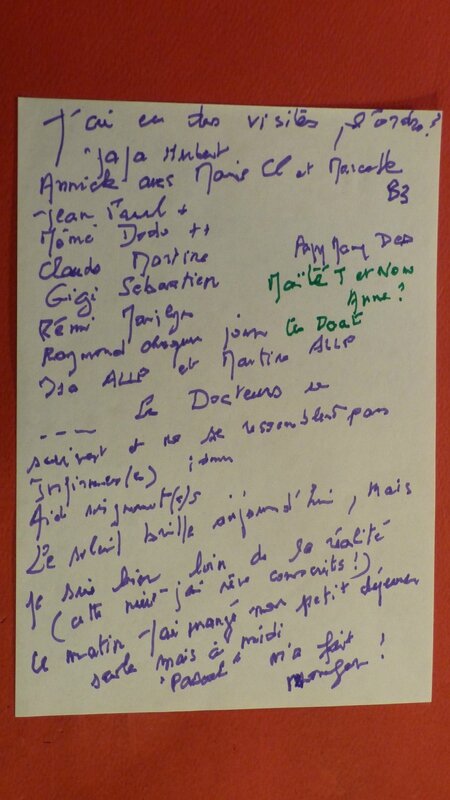 J'ai eu des visites, l'ordre?
Jaja Hubert
Annick avec Marie Cl et Mascotte
B3
Jean Paul +
Mômé Dodo ++
Claude Martine
Papy Mamy DED
Gigi Sébastien
Maïté T et Nono
Rémi Marilyn
Anne?
Raymond chaque jour les Doat
Isa ALLP et Martine ALLP
---- Les Docteurs se
suivent et ne se ressemblent pas
Infirmier(e) idem
Aid soignant(e)s
Le soleil brille aujourd'hui, mais
je suis bien loin de la réalité
(cette nuit j'ai rêvé conscrits!)
Ce matin j'ai mangé mon petit déjeuner
seule mais à midi
"Pascal" m'a fait
manger!